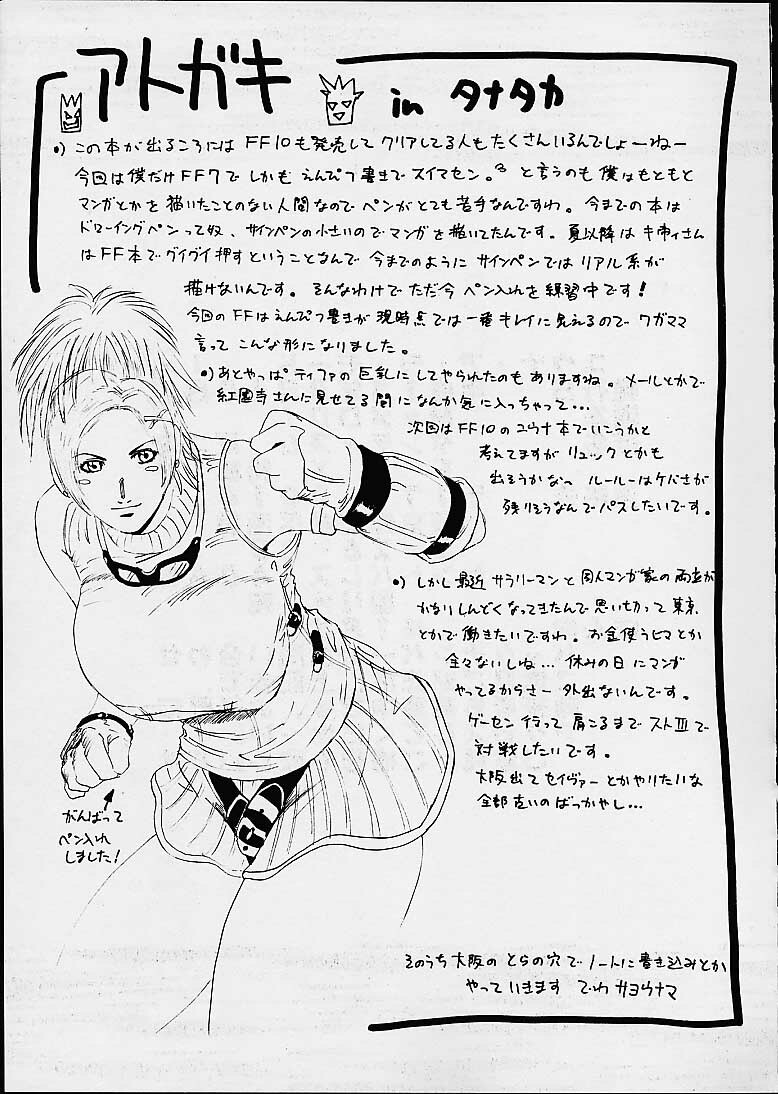 アトガキ
in タナタカ
•) この本が出るころには FF10も発売して クリアしてる人もたくさんいるんでしょーねー
今回は僕だけFF7で しかも えんぴつ書きで スイマセン。 と言うのも 僕はもともと
マンガとかを 描いたことのない人間なので ペンがとても苦手なんですわ。今までの本は
ドローイングペンって奴、サインペンの小さいので マンガを描いてたんです。夏以降は さん
はFF本でグイグイ押すということなんで 今までのように サインペンでは リアル系が
描けないんです。そんなわけで ただ今 ペン入れを練習中です!
今回のFFはえんぴつ書きが 現時点では一番キレイに見えるので ワガママ
言って こんな形になりました。
•) あとやっぱ ティファの巨乳に してやられたのもありますね。メールとかで
紅園寺さんに見せてる間に なんか気に入っちゃって…
次回はFF10のユウナ本でいこうかと
考えてますが リュックとかも
出そうかなっ ルールーはケバさが
残りそうなんで パスしたいです。
•) しかし最近 サラリーマンと同人マンガ家の両立が
かなりしんどくなってきたんで 思い切って東京
とかで働きたいですわ。お金使うヒマとか
全々ないしね… 休みの日にマンガ
やってるからさー 外出ないんです。
ゲーセン行って 肩こるまで ストⅢで
対戦したいです。
大阪出て セイヴァーとかやりたいな
全部古いのばっかやし…
がんばって
ペン入れ
しました!
そのうち大阪の とらの穴で ノートに書き込みとか
やって いきます でわ サヨウナマ